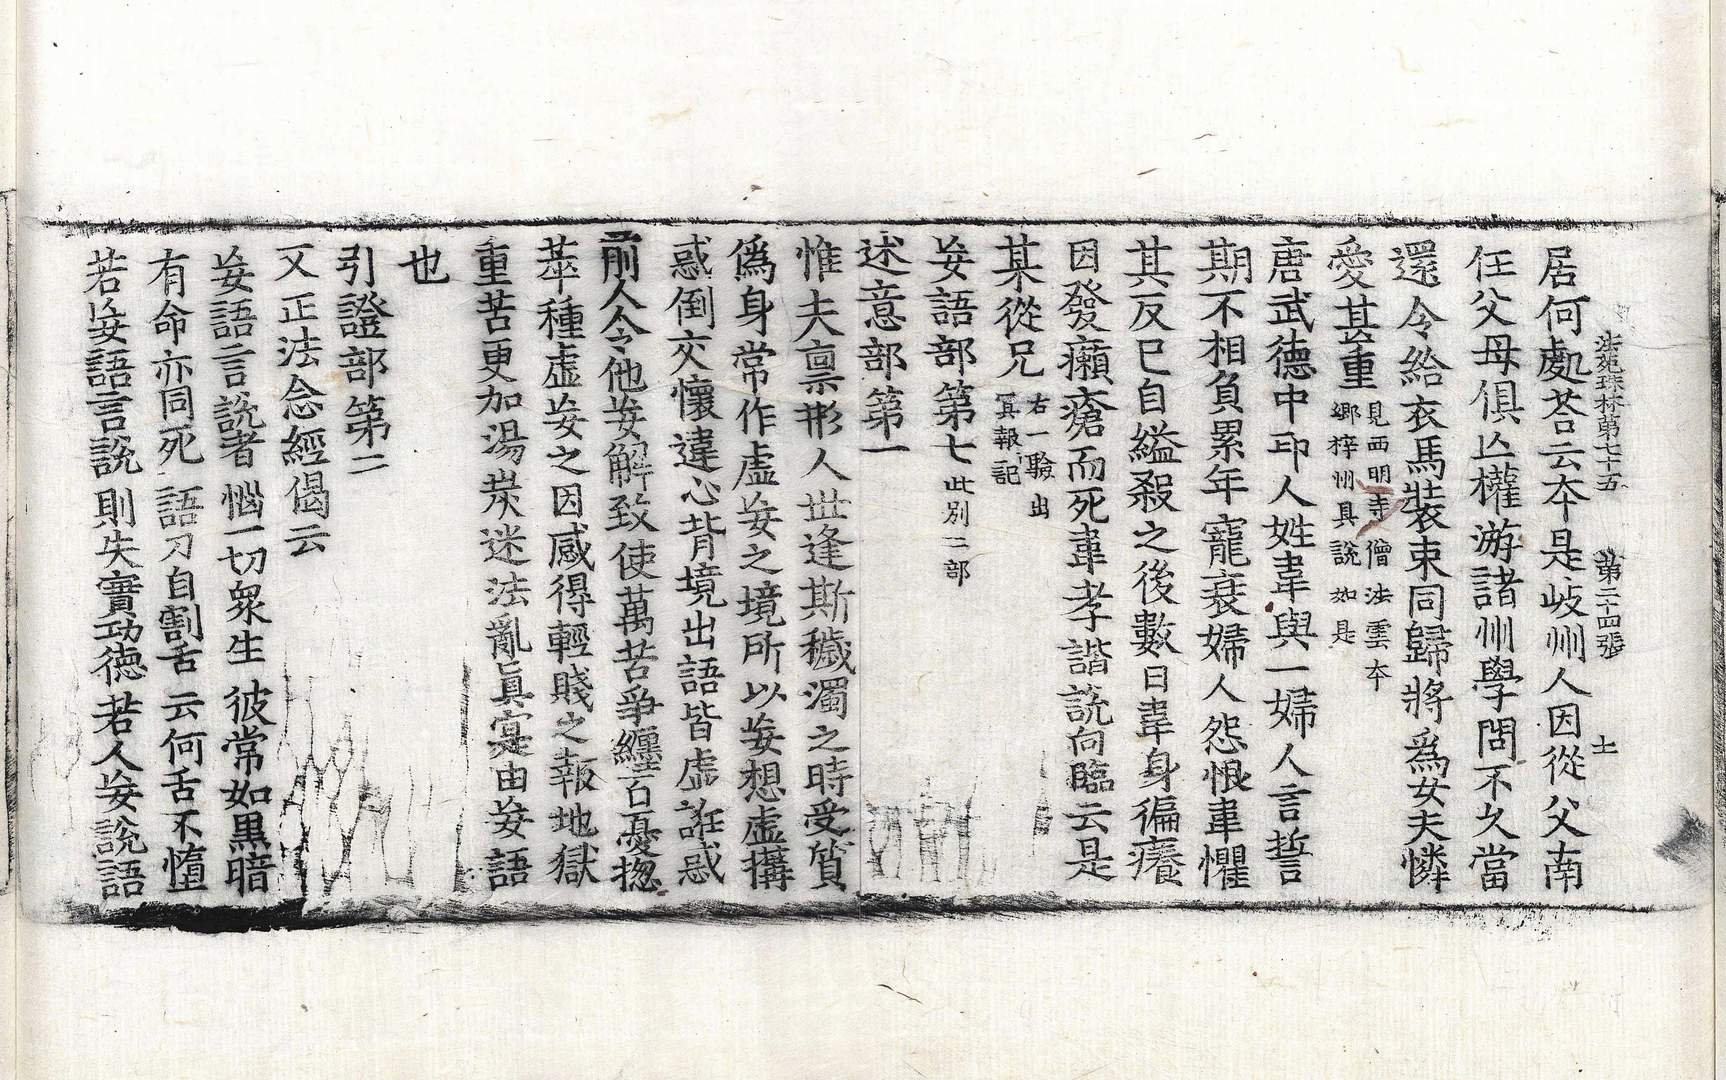 法苑珠林第七十五　第二十四張　士
居何處荅云夲是岐州人因從父南
任父母俱亾權游諸州學問不久當
還令給衣馬裝束同歸將爲女夫憐
愛甚重見西明寺僧法雲夲鄉梓州具說如是
唐武德中卭人姓韋與一婦人言誓
期不相負累年寵衰婦人怨恨韋懼
其反已自縊殺之後數日韋身徧癢
因發癩瘡而死韋孝諧說向臨云是
某從兄右一驗出冥報記
妄語部第七此別二部
述意部第一
惟夫禀形人世逢斯穢濁之時受質
僞身常作虛妄之境所以妄想虛搆
惑倒交懷違心背境出語皆虛誑惑
前人令他妄解致使萬苦爭纏百憂揔
萃種虛妄之因感得輕賤之報地獄
重苦更加湯炭迷法亂眞寔由妄語
也
引證部第二
又正法念經偈云
妄語言說者惱一切衆生彼常如黒暗
有命亦同死語刀自割舌云何舌不墮
若妄語言說則失實功德若人妄說語